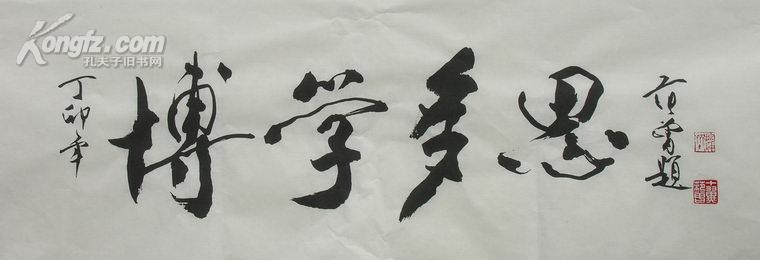 Kongfz.com
孔夫子旧书网
丁卯年
博学多思
范曾题